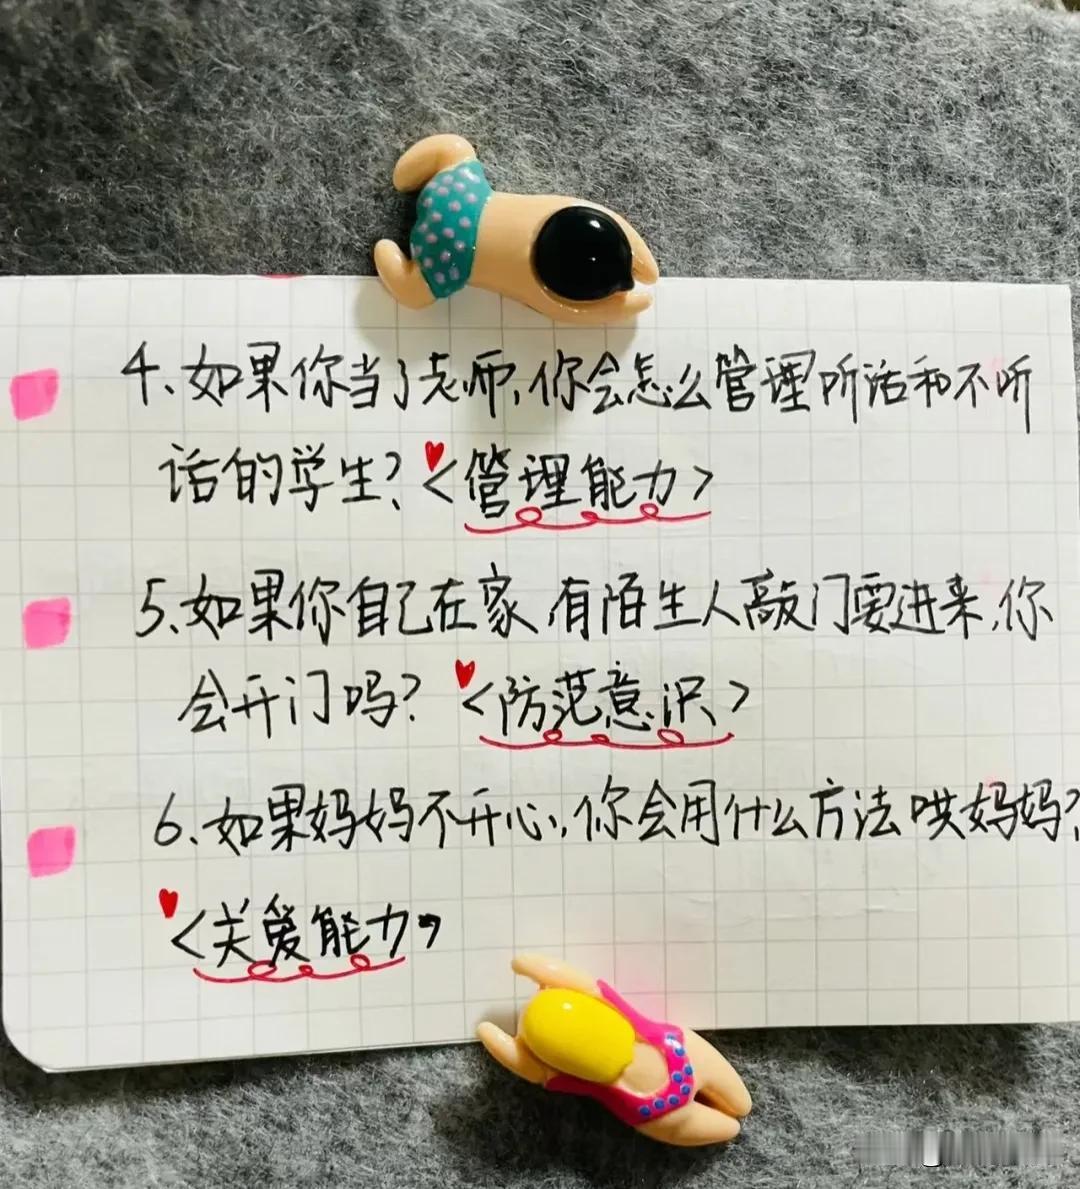 4、如果你当了老师,你会怎么管理听话和不听
话的学生?<管理能力>
5、如果你自己在家,有陌生人敲门要进来,你
会开门吗?<防范意识>
6、如果妈妈不开心,你会用什么方法哄妈妈?
<关爱能力>